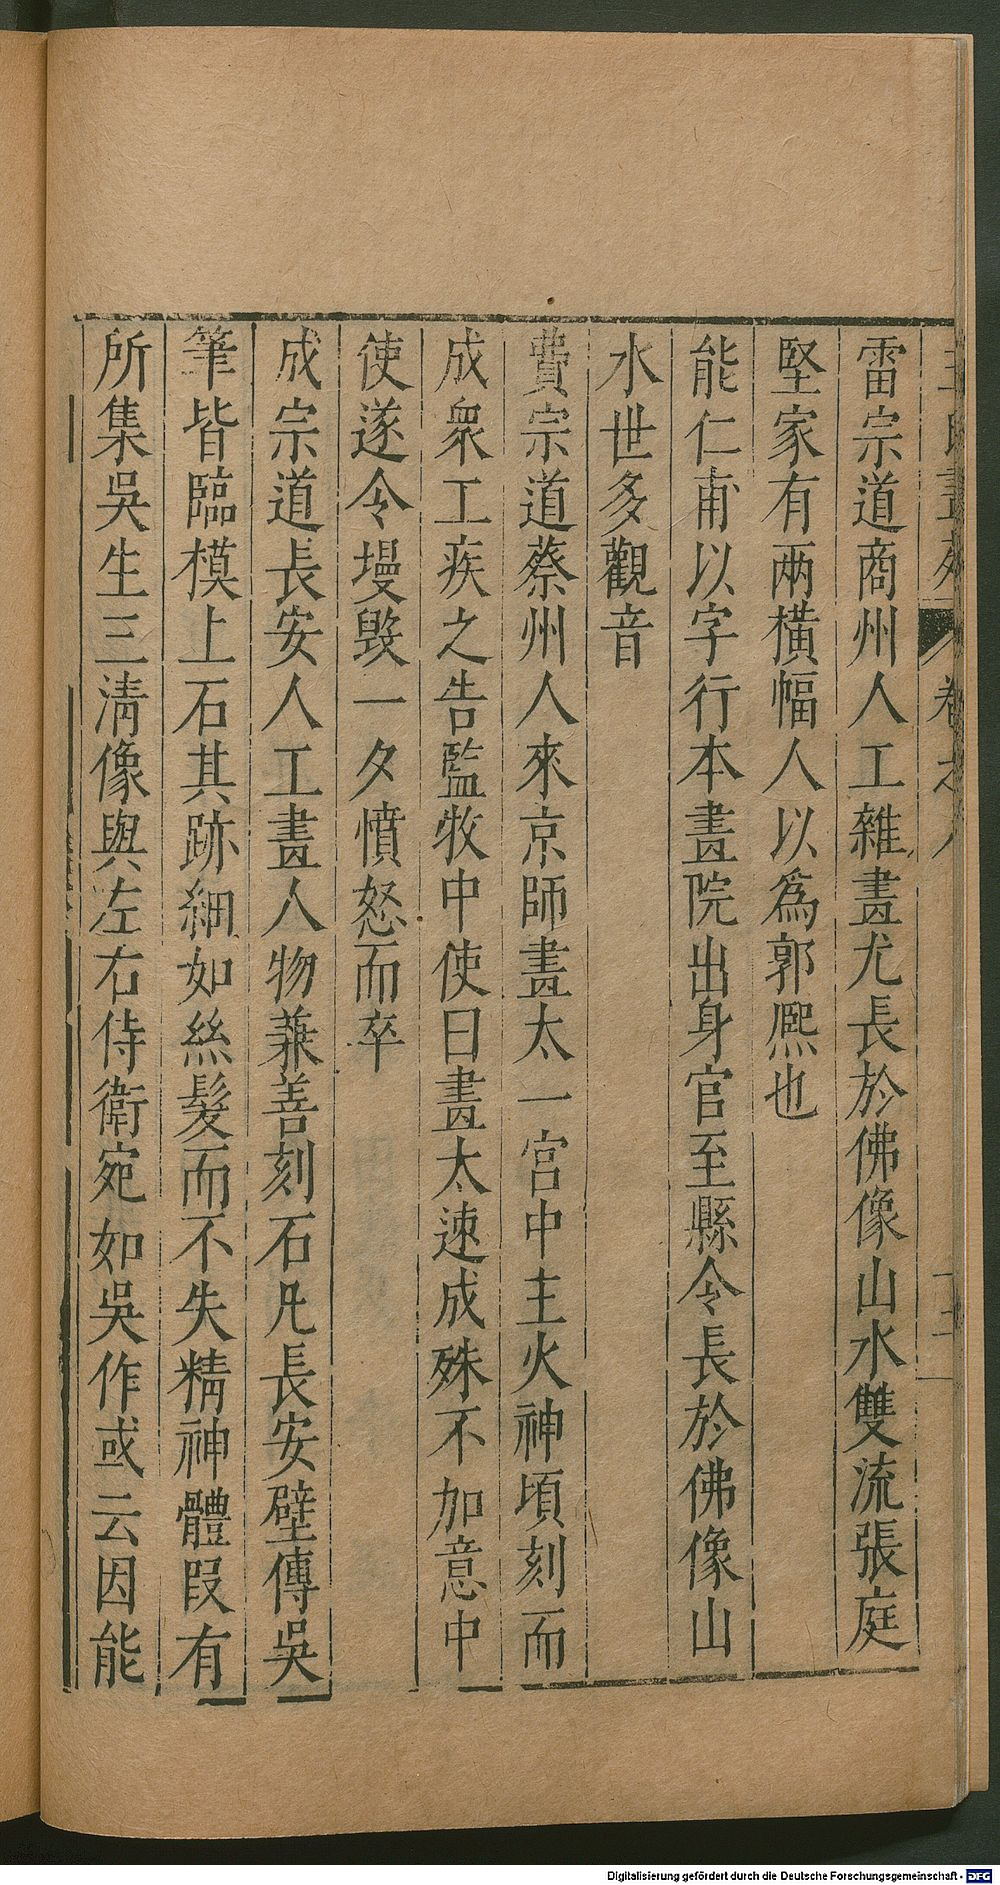 雷宗道商州人工雜畫尤長於佛像山水雙流張庭
堅家有兩橫幅人以爲郭熈也
能仁甫以字行本畫院出身官至縣令長於佛像山
水世多觀音
費宗道蔡州人來京師畫太一宮中主火神頃刻而
成衆工疾之告監牧中使曰畫太速成殊不加意中
使遂令墁毀一夕憤怒而卒
成宗道長安人工畫人物兼善刻石凡長安壁傳吳
筆皆臨模上石其跡細如絲髮而不失精神體叚有
所集吳生三清像與左右侍衛宛如吳作或云因能
Digitalisierung gefördert durch die Deutsche Forschungsgemeinschaft - DFG